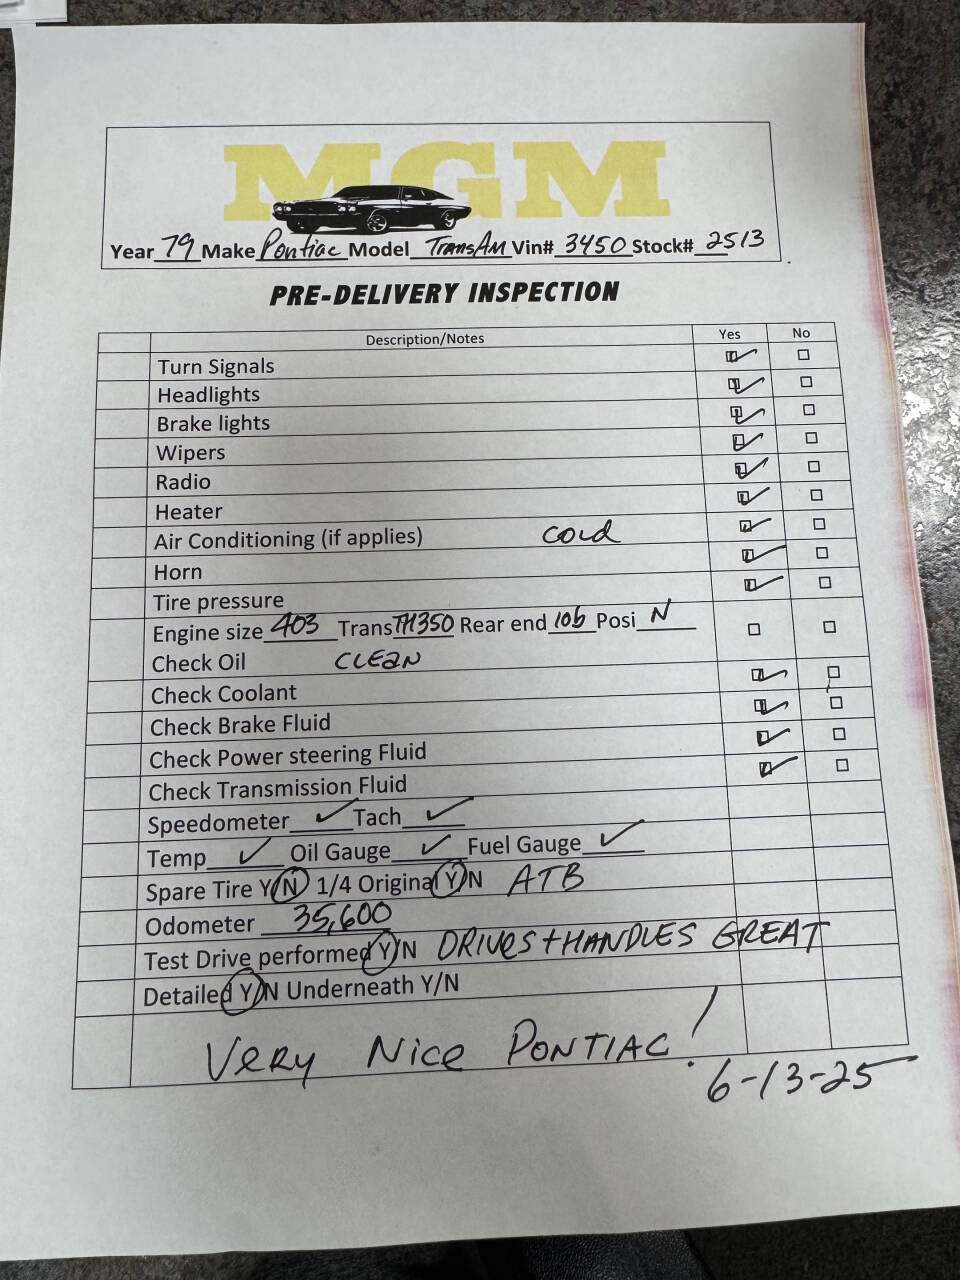 MGM
Year 79 Make Pontiac Model TransAm Vin# 3450 Stock# 2513
PRE-DELIVERY INSPECTION
Description/Notes Yes No
Turn Signals
Headlights
Brake lights
Wipers
Radio
Heater
Air Conditioning (if applies) COLD
Horn
Tire pressure
Engine size 403 Trans TH350 Rear end 10b Posi N
Check Oil CLEAN
Check Coolant
Check Brake Fluid
Check Power steering Fluid
Check Transmission Fluid
Speedometer ✓ Tach ✓
Temp ✓ Oil Gauge ✓ Fuel Gauge ✓
Spare Tire Y/N 1/4 Original Y/N ATB
Odometer 35,600
Test Drive performed Y/N DRIVES + HANDLES GREAT
Detailed Y/N Underneath Y/N
Very Nice PONTIAC!
6-13-25